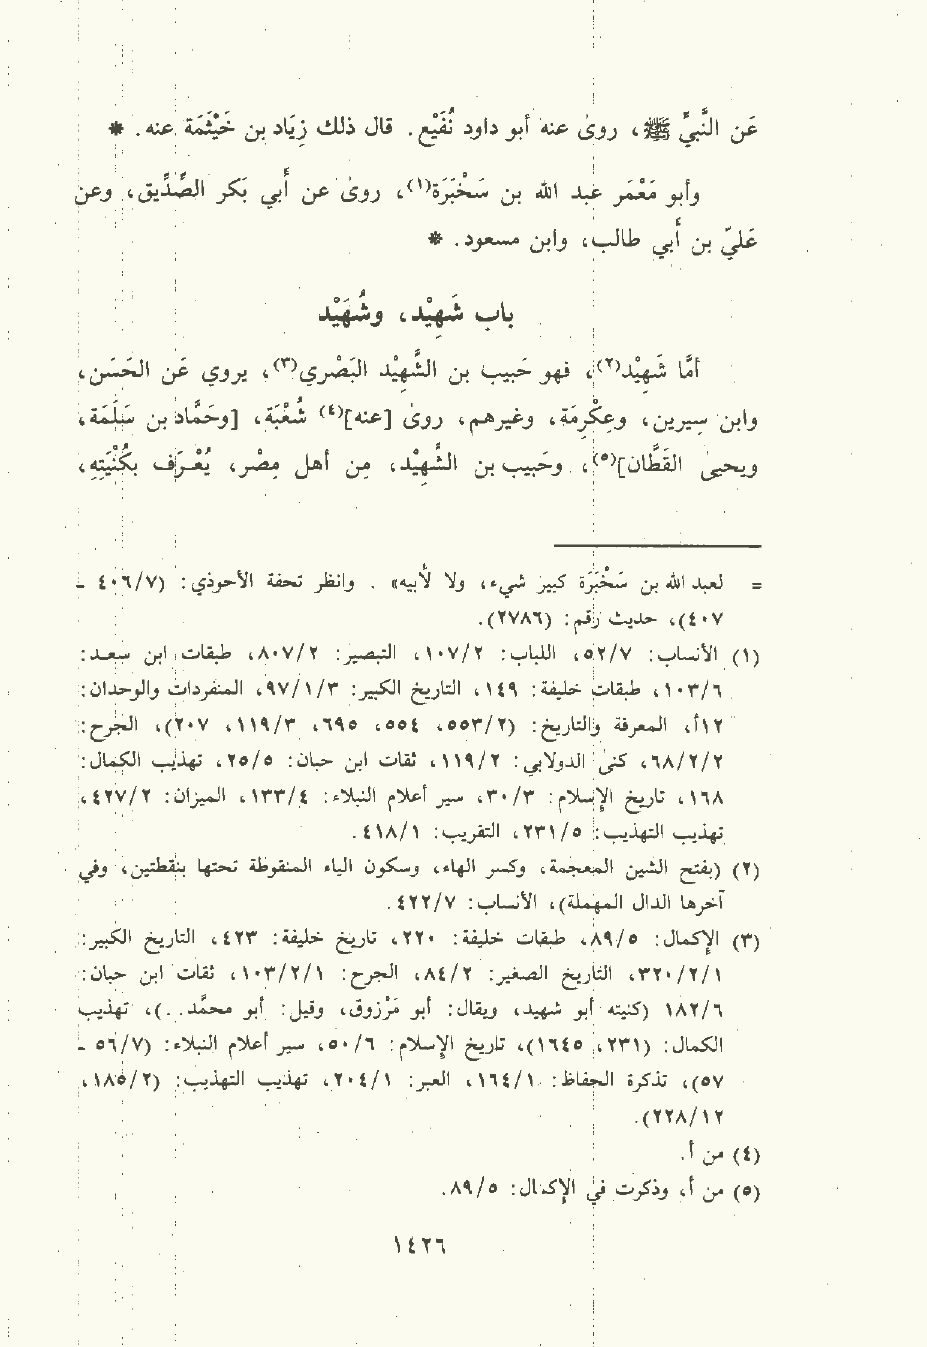 عَن النَّبيِّ ﷺ، روىٰ عنه أبو داود نُفَيْع. قال ذلك زِيَاد بن خَيْثَمَة عنه. *
وأبو مَعْمَر عبد الله بن سَخْبَرَة(١)، روىٰ عن أَبي بَكر الصِّدِّيق، وعن
عَليّ بن أَبي طالب، وابن مسعود. *
باب شَهِيْد، وشُهَيْد
أمَّا شَهِيْد(٢)، فهو حَبيب بن الشَّهِيْد البَصْري(٣)، يروي عَن الحَسَن،
وابن سِيرين، وعِكْرِمَة، وغيرهم، روىٰ [عنه](٤) شُعْبَة، [وحَمَّاد بن سَلَمَة،
ويحيىٰ القَطَّان](٥)، وحَبيب بن الشَّهِيْد، مِن أهل مِصْر، يُعْرَف بكُنْيَتِهِ،
= لعبد الله بن سَخْبَرَة كبير شيء، ولا لأَبيه» . وانظر تحفة الأحوذي: (٤٠٦/٧ -
٤٠٧)، حديث رقم: (٢٧٨٦).
(١) الأنساب: ٥٢/٧، اللباب: ١٠٧/٢، التبصير: ٨٠٧/٢، طبقات ابن سعد:
١٠٣/٦، طبقات خليفة: ١٤٩، التاريخ الكبير: ٩٧/١/٣، المنفردات والوحدان:
١٢أ، المعرفة والتاريخ: (٥٥٣/٢، ٥٥٤، ٦٩٥، ١١٩/٣، ٢٠٧)، الجرح:
٦٨/٢/٢، كنىٰ الدولابي: ١١٩/٢، ثقات ابن حبان: ٢٥/٥، تهذيب الكمال:
١٦٨، تاريخ الإسلام: ٣٠/٣، سير أعلام النبلاء: ١٣٣/٤، الميزان: ٤٢٧/٢،
تهذيب التهذيب: ٢٣١/٥، التقريب: ٤١٨/١.
(٢) (بفتح الشين المعجمة، وكسر الهاء، وسكون الياء المنقوطة تحتها بنقطتين، وفي
آخرها الدال المهملة)، الأنساب: ٤٢٢/٧.
(٣) الإكمال: ٨٩/٥، طبقات خليفة: ٢٢٠، تاريخ خليفة: ٤٢٣، التاريخ الكبير:
٣٢٠/٢/١، التاريخ الصغير: ٨٤/٢، الجرح: ١٠٣/٢/١، ثقات ابن حبان:
١٨٢/٦ (كنيته أبو شهيد، ويقال: أبو مَرْزوق، وقيل: أبو محمَّد..)، تهذيب
الكمال: (٢٣١، ١٦٤٥)، تاريخ الإسلام: ٥٠/٦، سير أعلام النبلاء: (٥٦/٧ -
٥٧)، تذكرة الحفاظ: ١٦٤/١، العبر: ٢٠٤/١، تهذيب التهذيب: (١٨٥/٢،
٢٢٨/١٢).
(٤) من أ.
(٥) من أ، وذكرت في الإكمال: ٨٩/٥.
١٤٢٦